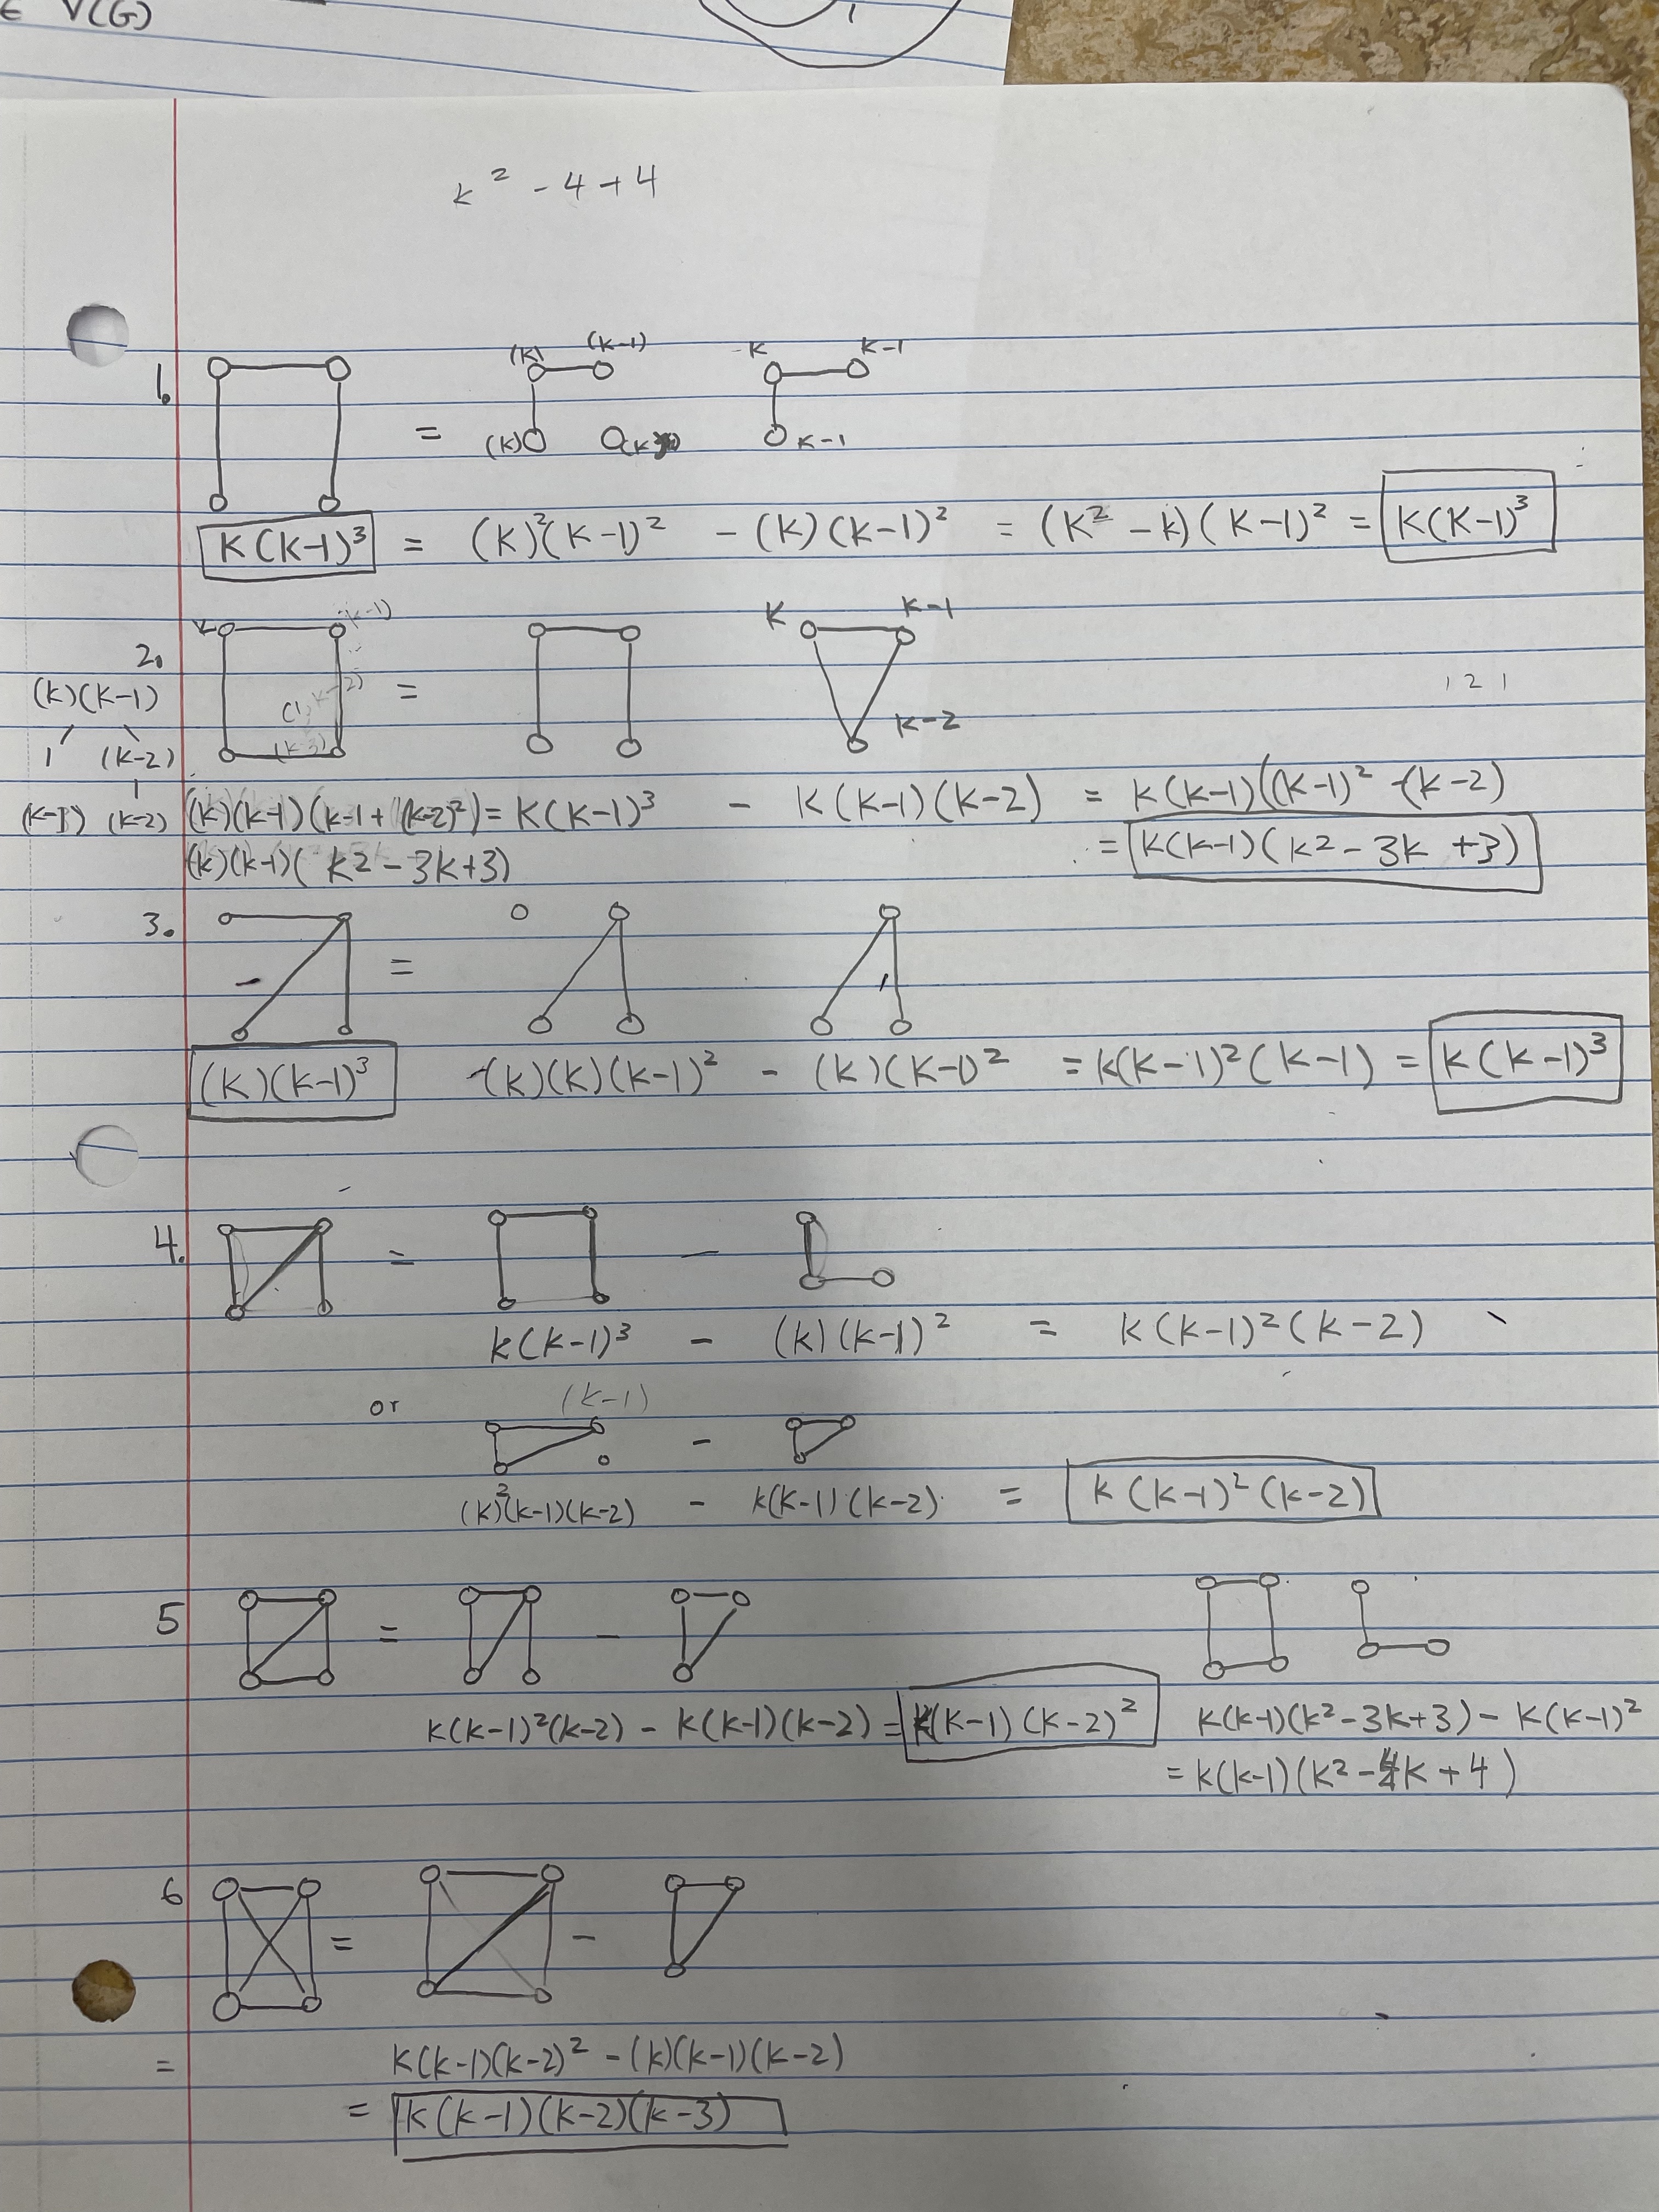 ∈ V(G)
1
k² - 4 + 4
1.
(k) (k-1) k k-1
=
(k) k-1
K(K-1)³ = (K)²(K-1)² - (K)(K-1)² = (K² - k)(K-1)² = K(K-1)³
2.
k (k-1) K K-1
(k)(k-1) (1, k-2) = k-2 1 2 1
1 (k-2) (k-3)
(k-1) (k-2) (k)(k-1)(k-1+(k-2)²) = K(K-1)³ - K(K-1)(K-2) = K(K-1)((K-1)² - (k-2)
(k)(k-1)( k2 - 3k+3) = K(K-1)(K² - 3K +3)
3.
=
(K)(K-1)³ (K)(K)(K-1)² - (K)(K-1)² = K(K-1)²(K-1) = K(K-1)³
4. = -
k(k-1)³ - (k)(k-1)² = k(k-1)²(k-2)
or (k-1)
-
(k)²(k-1)(k-2) - k(k-1)(k-2) = k(k-1)²(k-2)
5 = -
k(k-1)²(k-2) - k(k-1)(k-2) = k(k-1)(k-2)² k(k-1)(k²-3k+3) - k(k-1)²
= k(k-1)(k²-4k+4)
6 = -
= k(k-1)(k-2)² - (k)(k-1)(k-2)
= k(k-1)(k-2)(k-3)